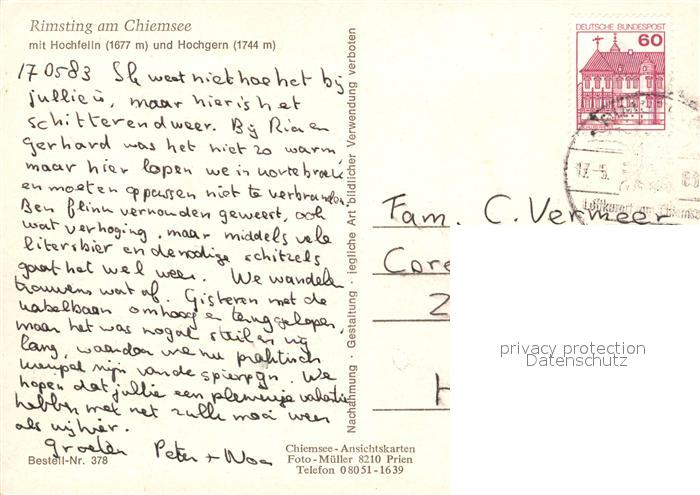 Rimsting am Chiemsee
mit Hochfelln (1677 m) und Hochgern (1744 m)
170583 Ik weet niet hoe het bij
jullie is, maar hier is het
schitterend weer. Bij Ria en
Gerhard was het niet zo warm,
maar hier lopen we in korte
en moeten oppassen niet te verbranden.
Ben flink verkouden geweest, ook
wat verhoging, maar middels vele
liters bier en de nodige schitzels
gaat het wel weer. We wandelen
trouwens wat af. Gisteren met de
kabelbaan omhoog en teruggelopen,
maar het was nogal steil en vrij
lang, waardoor we nu praktisch
kreupel zijn van de spierpijn. We
hopen dat jullie een plezierige vakantie
hebben met net zulk mooi weer
als wij hier.
Groeten Peter +
Bestell-Nr. 378
Chiemsee-Ansichtskarten
Foto-Müller 8210 Prien
Telefon 08051-1639
Nachahmung · Gestaltung · jegliche Art bildlicher Verwendung verboten
DEUTSCHE BUNDESPOST
60
17.-5.
Luftkurort am Chiemsee
Fam. C. Vermeer
Core
2
H
privacy protection
Datenschutz